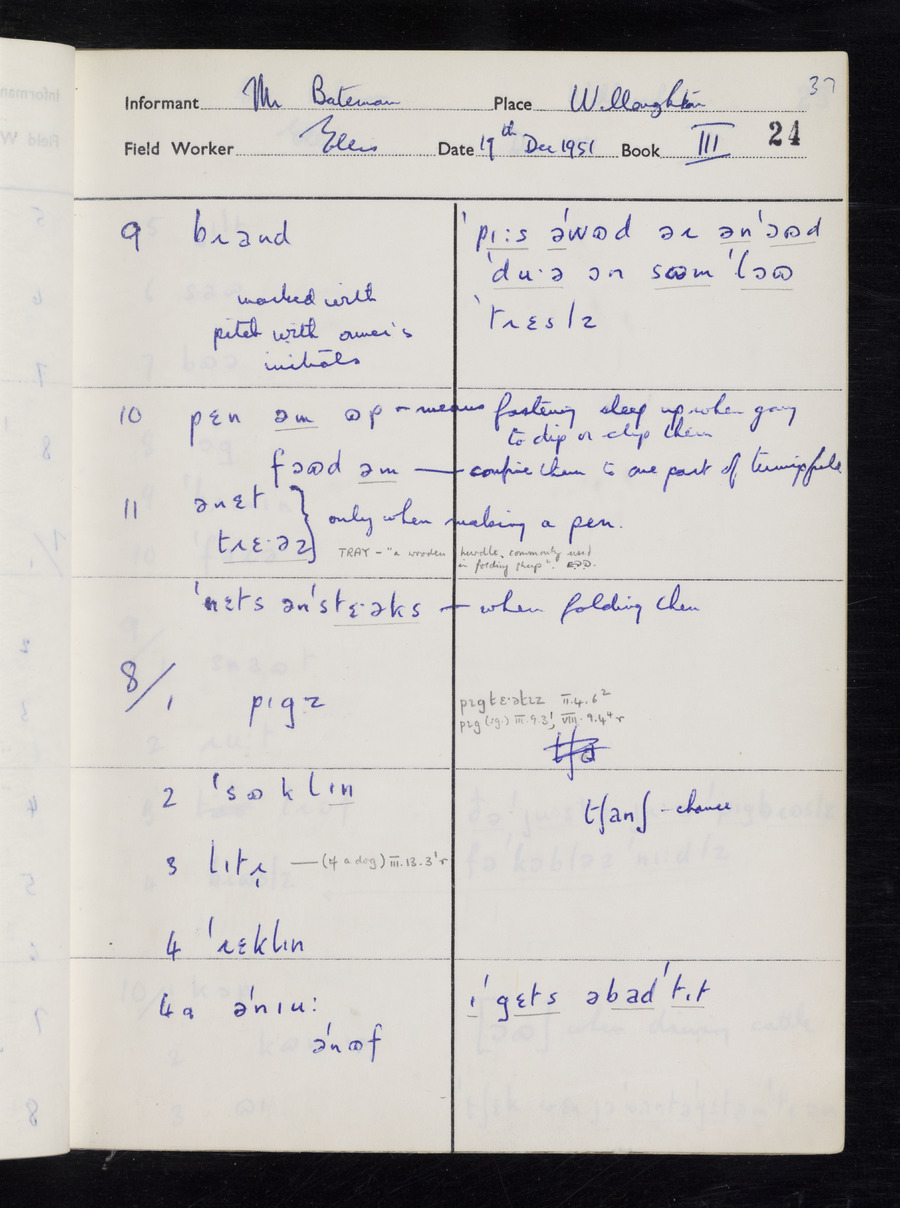 37
Informant Mr Bateman Place Willoughton
Field Worker Ellis Date 19th Dec 1951 Book III 24
9 bɹand ˈpɪːs əˈwɷd əɹ ənˈɔɷd
ˈduˑə ɔn sɷm ˈlɔɷ
marked with
pitch with owner's ˈtɹɛslz
initials
10 pɛn əm ɷp – means fastening sleep up when going
to dip or clip them
fɔɷd əm — confine them to one part of turnip field
11 ənɛt } only when making a pen.
tɹɛˑəz
TRAY – "a wooden hurdle, commonly used
in folding sheep". EDD.
ˈnɛts ənˈstɛˑəks — when folding them
8/1 pɪgz
pɪgtɛˑətɪz II.4.6²
pɪg (sg.) III.9.3ˈ, VIII.9.4⁴r
2 ˈsɷklɪn tʃanʃ – chance
3 lɪtɹ̩ — (of a dog) III.13.3ˈr
4 ˈɹɛklɪn
4a əˈnɪuː ɪˈgɛts əbadˈtɪt
əˈnɷf